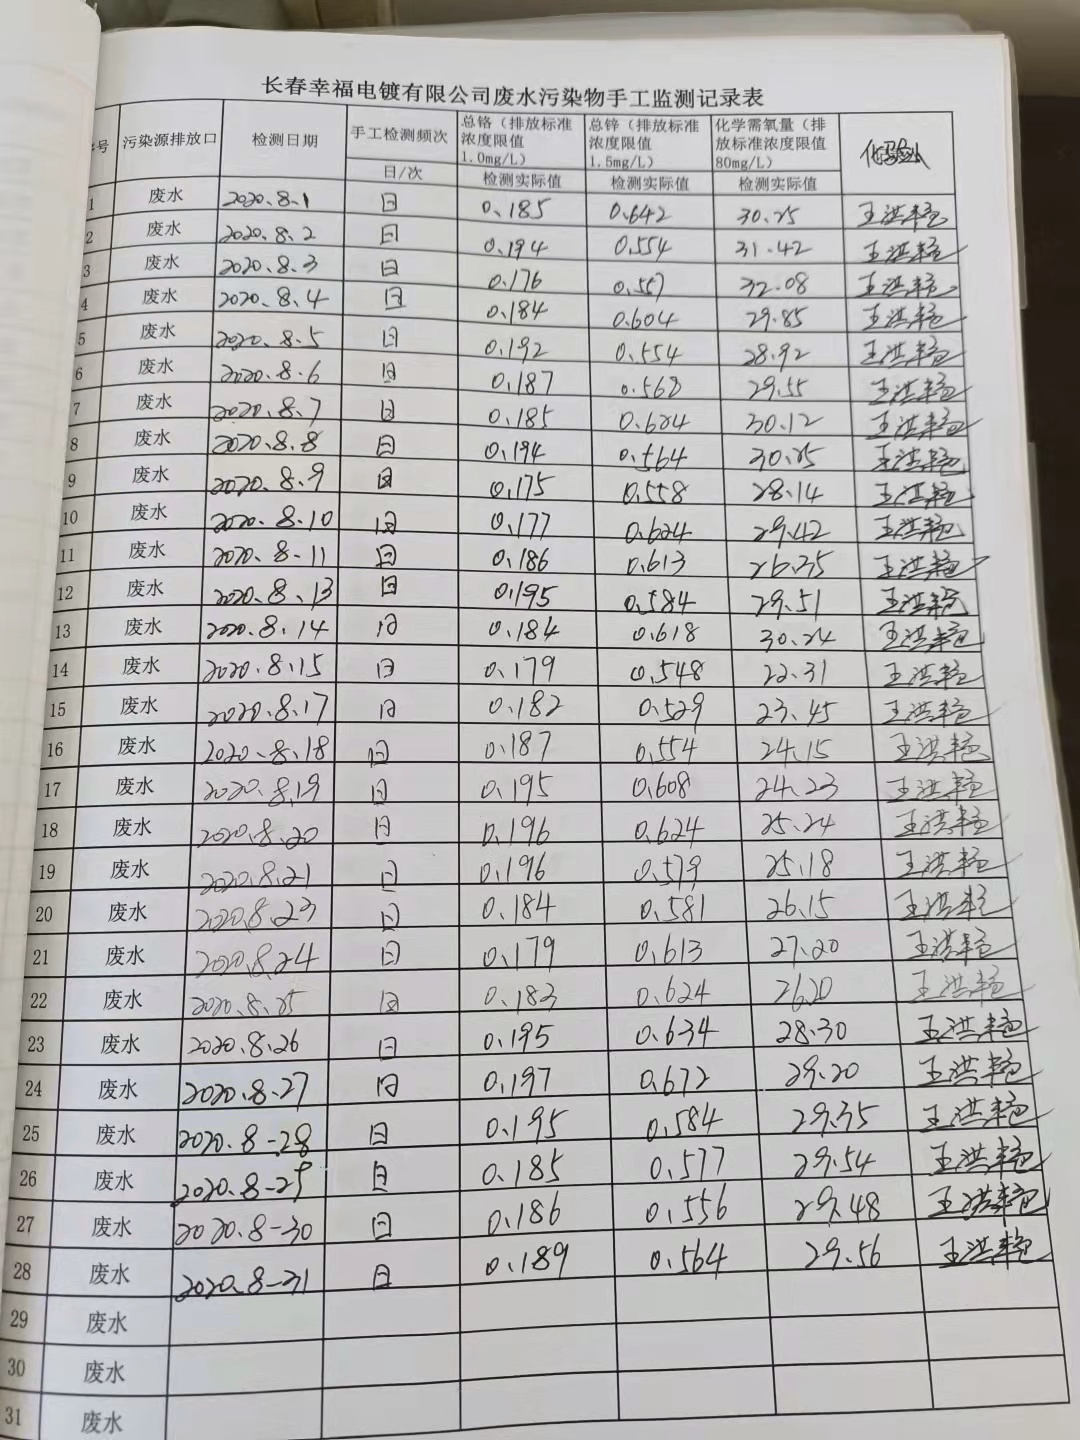 长春幸福电镀有限公司废水污染物手工监测记录表
序号 污染源排放口 检测日期 手工检测频次 总铬（排放标准浓度限值1.0mg/L） 总锌（排放标准浓度限值1.5mg/L） 化学需氧量（排放标准浓度限值80mg/L） 化验人
日/次 检测实际值 检测实际值 检测实际值
1 废水 2020.8.1 日 0.185 0.642 30.25 王洪艳
2 废水 2020.8.2 日 0.194 0.554 31.42 王洪艳
3 废水 2020.8.3 日 0.176 0.557 32.08 王洪艳
4 废水 2020.8.4 日 0.184 0.604 29.85 王洪艳
5 废水 2020.8.5 日 0.192 0.554 28.92 王洪艳
6 废水 2020.8.6 日 0.187 0.568 29.55 王洪艳
7 废水 2020.8.7 日 0.185 0.624 30.12 王洪艳
8 废水 2020.8.8 日 0.194 0.564 30.25 王洪艳
9 废水 2020.8.9 日 0.175 0.558 28.14 王洪艳
10 废水 2020.8.10 日 0.177 0.624 29.42 王洪艳
11 废水 2020.8.11 日 0.186 0.613 26.35 王洪艳
12 废水 2020.8.13 日 0.195 0.584 29.51 王洪艳
13 废水 2020.8.14 日 0.184 0.618 30.24 王洪艳
14 废水 2020.8.15 日 0.179 0.548 22.31 王洪艳
15 废水 2020.8.17 日 0.182 0.529 23.45 王洪艳
16 废水 2020.8.18 日 0.187 0.554 24.15 王洪艳
17 废水 2020.8.19 日 0.195 0.608 24.23 王洪艳
18 废水 2020.8.20 日 0.196 0.624 25.24 王洪艳
19 废水 2020.8.21 日 0.196 0.579 25.18 王洪艳
20 废水 2020.8.23 日 0.184 0.581 26.15 王洪艳
21 废水 2020.8.24 日 0.179 0.613 27.20 王洪艳
22 废水 2020.8.25 日 0.183 0.624 26.20 王洪艳
23 废水 2020.8.26 日 0.195 0.634 28.30 王洪艳
24 废水 2020.8.27 日 0.197 0.672 29.20 王洪艳
25 废水 2020.8-28 日 0.195 0.584 29.35 王洪艳
26 废水 2020.8-29 日 0.185 0.577 29.54 王洪艳
27 废水 2020.8-30 日 0.186 0.556 29.48 王洪艳
28 废水 2020.8-31 日 0.189 0.564 29.56 王洪艳
29 废水
30 废水
31 废水